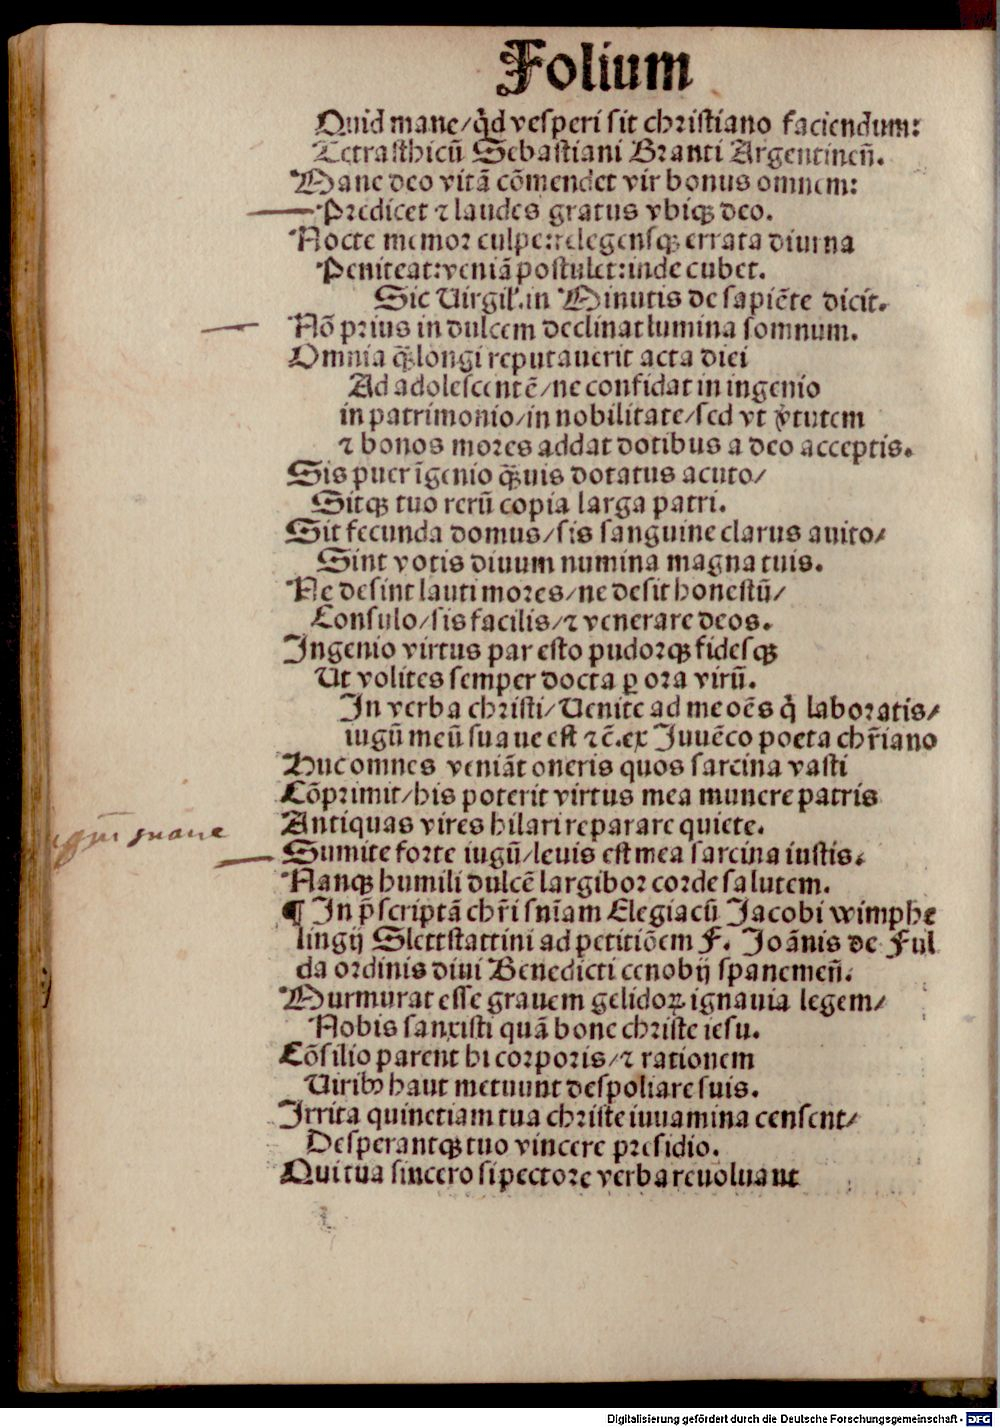 Folium
Quid mane/qͥd vesperi sit christiano faciendum:
Tetrasthicū Sebastiani Branti Argentineñ.
Mane deo vitā cōmendet vir bonus omnem:
Predicet ⁊ laudes gratus vbiqꝫ deo.
Nocte memor culpe:relegensqꝫ errata diurna
Peniteat:veniā postulet:inde cubet.
Sic Uirgil'.in Minutis de sapiēte dicit.
Nō prius in dulcem declinat lumina somnum.
Omnia q̄̈ longi reputauerit acta diei
Ad adolescentē/ne confidat in ingenio
in patrimonio/in nobilitate/sed vt v̓tutem
⁊ bonos mores addat dotibus a deo acceptis.
Sis puer īgenio q̄̈uis dotatus acuto/
Sitqꝫ tuo rerū copia larga patri.
Sit fecunda domus/sis sanguine clarus auito/
Sint votis diuum numina magna tuis.
Ne desint lauti mores/ne desit honestū/
Consulo/sis facilis/⁊ venerare deos.
Ingenio virtus par esto pudorqꝫ fidesqꝫ
Ut volites semper docta ꝑ ora virū.
In verba christi/Uenite ad me oēs qͥ laboratis/
iugū meū suaue est ⁊c̄.ex Juuēco poeta chr̄iano
Huc omnes veniāt oneris quos sarcina vasti
Cōprimit/his poterit virtus mea munere patris
Antiquas vires hilari reparare quiete.
iugum suaue
Sumite forte iugū/leuis est mea sarcina iustis.
Nanqꝫ humili dulcē largibor corde salutem.
¶ In p̄scriptā chr̄i sn̄iam Elegiacū Jacobi wimphe
lingij Slettstattini ad petitiōem F. Joānis de Ful
da ordinis diui Benedicti cenobij spanemeñ.
Murmurat esse grauem gelidoꝝ ignauia legem/
Nobis sanxisti quā bone christe iesu.
Cōsilio parent hi corporis/⁊ rationem
Uiribꝰ haut metuunt despoliare suis.
Irrita quinetiam tua christe iuuamina censent/
Desperantqꝫ tuo vincere presidio.
Qui tua sincero si pectore verba reuoluant
Digitalisierung gefördert durch die Deutsche Forschungsgemeinschaft - DFG